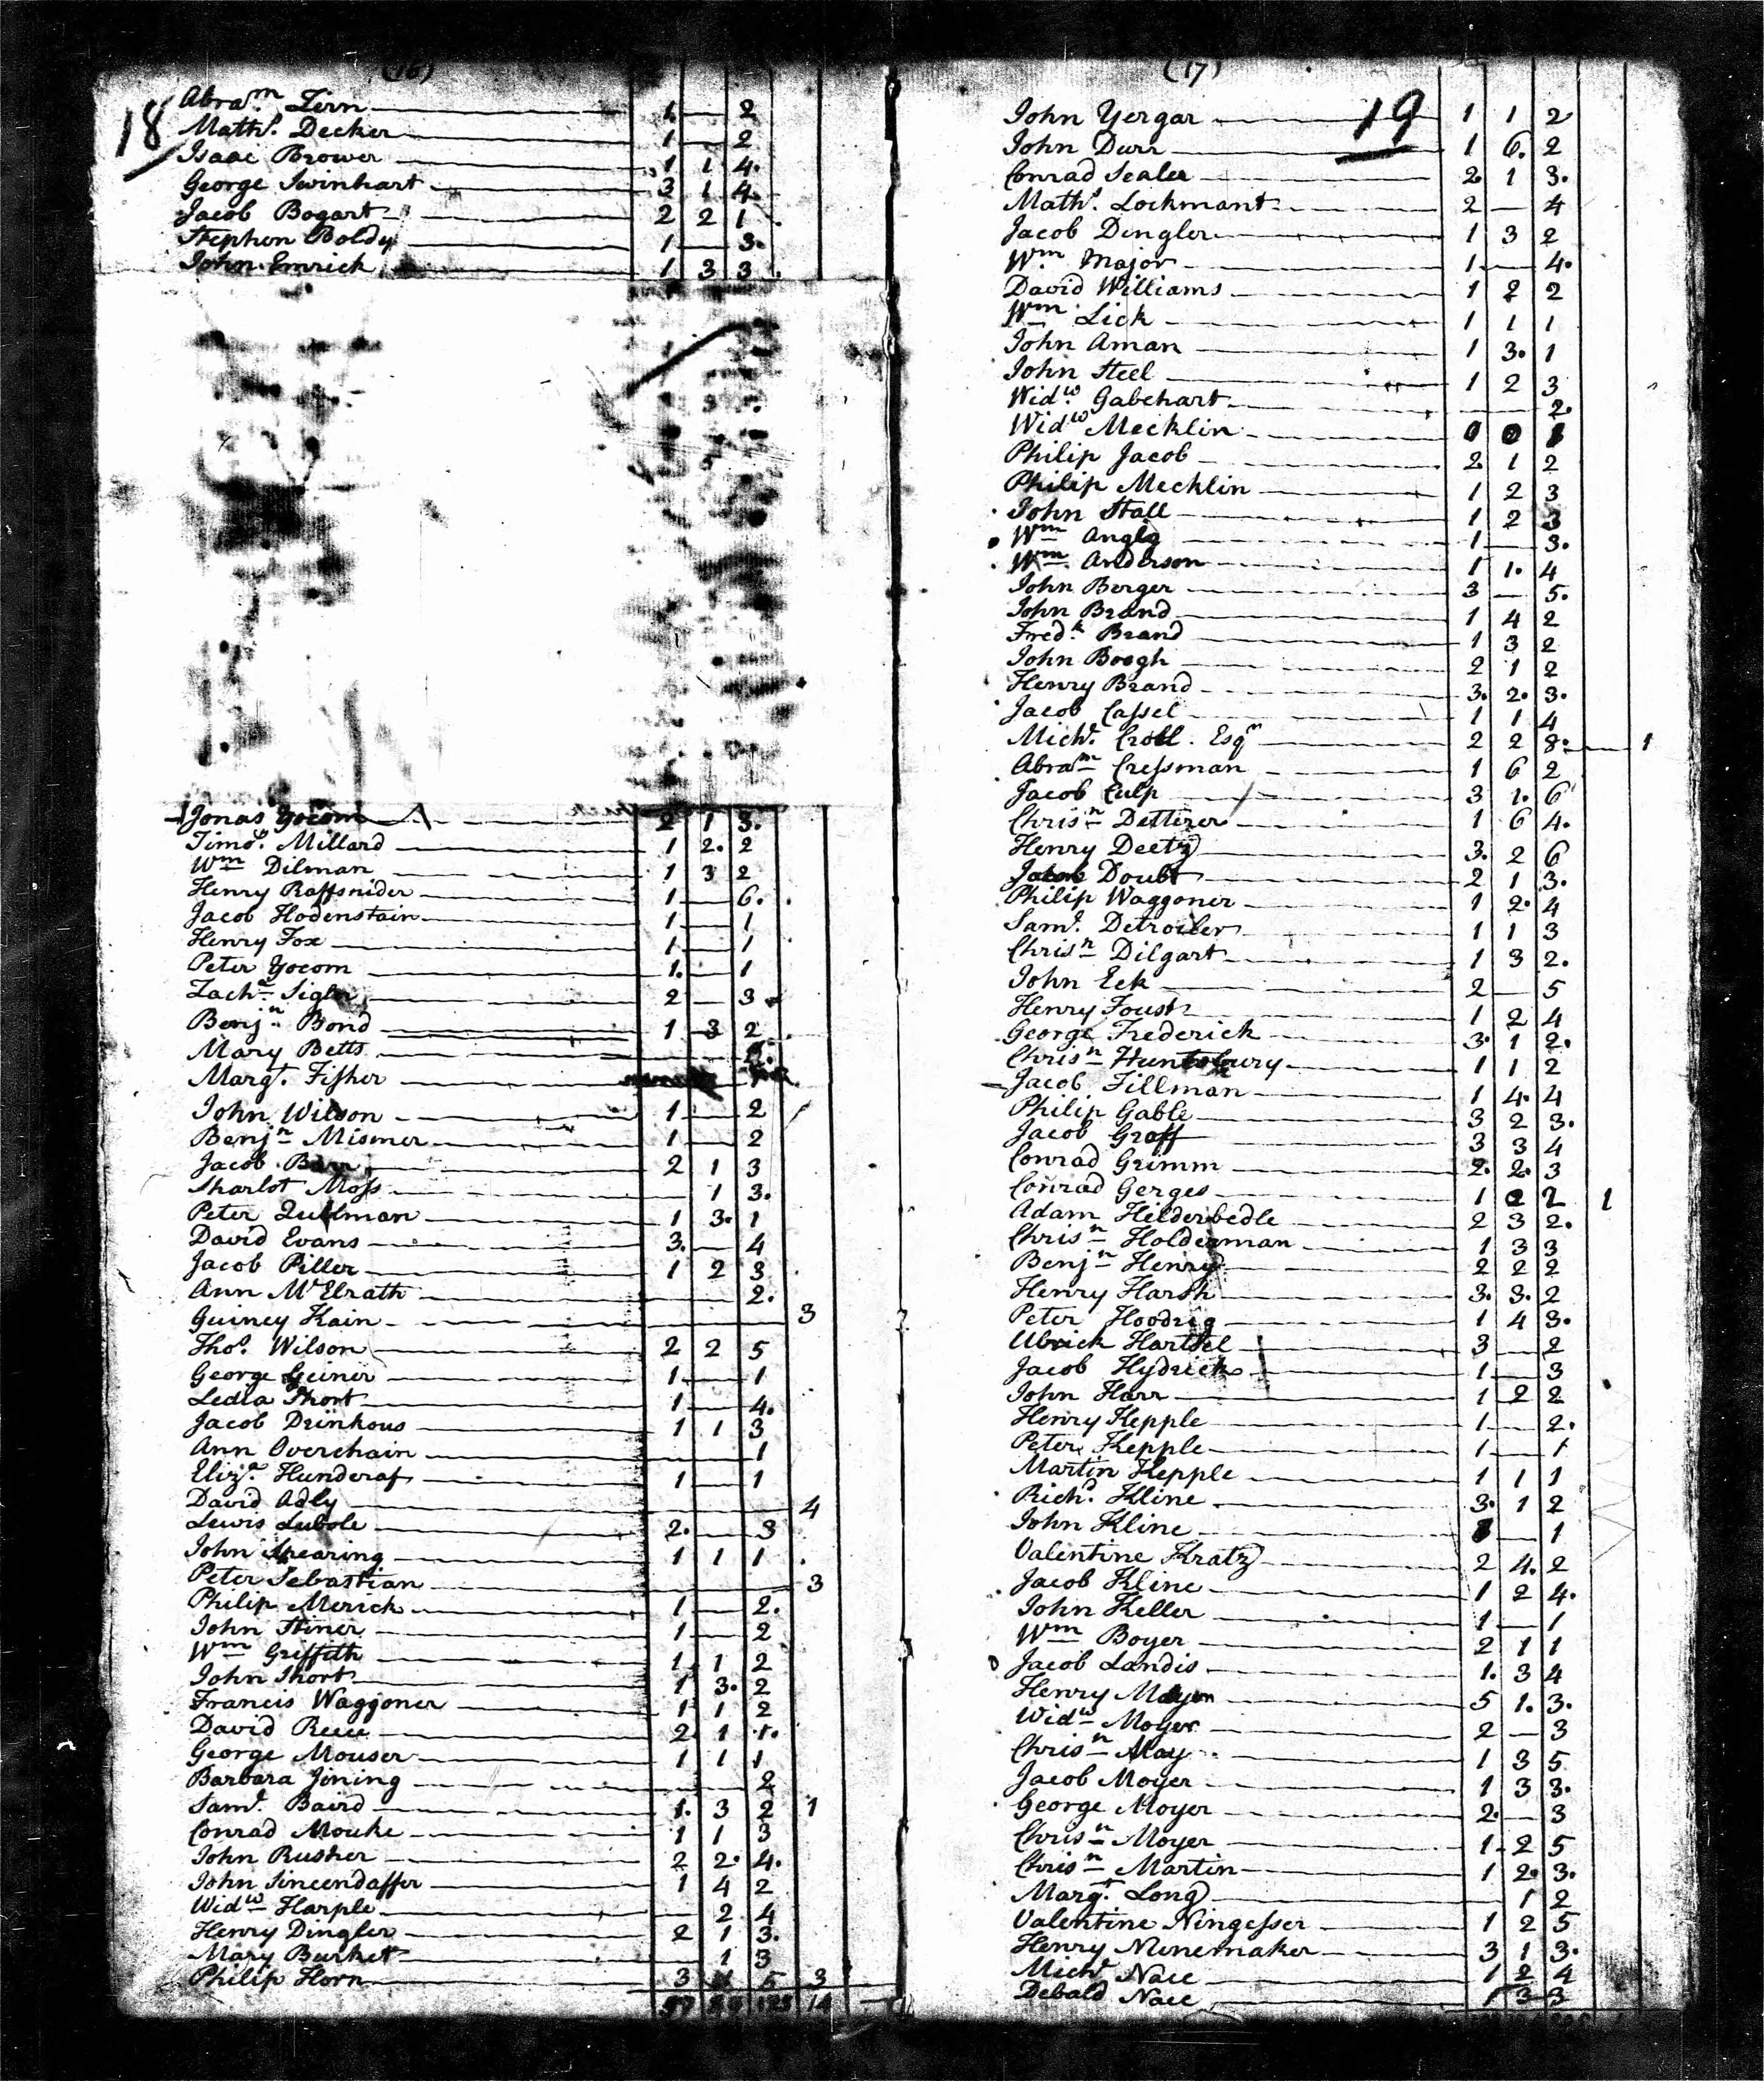 (16)
18
Abra.m Zirn 1 — 2
Math.s Decker 1 — 2
Isaac Brower 1 1 4
George Swinhart 3 1 4
Jacob Bogart 2 2 1
Stephen Boldy 1 — 3
John Emrich 1 3 3
Jonas Yocom 2 1 3
Timo.y Millard 1 2 2
Wm Dilman 1 3 2
Henry Raffsnider 1 — 6
Jacob Hodenstain 1 — 1
Henry Fox 1 — 1
Peter Yocom 1 — 1
Zach.a Sigler 2 — 3
Benj.n Bond 1 3 2
Mary Betts
Margt. Fisher
John Wilson 1 — 2
Benjn Mismer 1 — 2
Jacob Barr 2 1 3
Sharlot Moss 1 3
Peter Qullman 1 3 1
David Evans 3 — 4
Jacob Piller 1 2 3
Ann McElrath 2
Guiney Kain 3
Tho.s Wilson 2 2 5
George Geiner 1 — 1
Ledia Short 1 — 4
Jacob Drinkous 1 1 3
Ann Overchain 1
Eliz.a Hunderaf 1 — 1
David Adly 4
Lewis Lubole 2 — 3
John Spearing 1 1 1
Peter Sebastian 3
Philip Merick 1 — 2
John Stiner 1 — 2
Wm Griffith 1 1 2
John Short 1 3 2
Francis Waggoner 1 1 2
David Reece 2 1 1
George Mouser 1 1 1
Barbara Jining 2
Saml. Baird 1 3 2 1
Conrad Mouke 1 1 3
John Rusher 2 2 4
John Sincendaffer 1 4 2
Widw Harple 2 4
Henry Dingler 2 1 3
Mary Burket 1 3
Philip Horn 3 5 3
(17)
19
John Yergar 1 1 2
John Durr 1 6 2
Conrad Sealer 2 1 3
Math.s Lockmant 2 — 4
Jacob Dingler 1 3 2
Wm Major 1 — 4
David Williams 1 2 2
Wm Lick 1 1 1
John Aman 1 3 1
John Steel 1 2 3
Widw Gabehart 2
Widw Mecklin
Philip Jacob 2 1 2
Philip Mecklin 1 2 3
John Stall 1 2 3
Wm Angla 1 — 3
Wm Anderson 1 1 4
John Berger 3 — 5
John Brand 1 4 2
Fred.k Brand 1 3 2
John Boogh 2 1 2
Henry Brand 3 2 3
Jacob Cassel 1 1 4
Michl. Croll Esqr 2 2 8 — 1
Abram Cressman 1 6 2
Jacob Culp 3 1 6
Chrisn Detterer 1 6 4
Henry Deetz 3 2 6
Jacob Doubt 2 1 3
Philip Waggoner 1 2 4
Saml. Detroiler 1 1 3
Chrisn Dilgart 1 3 2
John Eck 2 — 5
Henry Foust 1 2 4
George Frederick 3 1 2
Chrisn Huntsbury 1 1 2
Jacob Fillman 1 4 4
Philip Gable 3 2 3
Jacob Graff 3 3 4
Conrad Grimm 2 2 3
Conrad Gerges 1 2 2 1
Adam Hilderbedle 2 3 2
Chrisn Holderman 1 3 3
Benjn Henry 2 2 2
Henry Harsh 3 3 2
Peter Hoodrig 1 4 3
Ulrick Hartsel 3 — 2
Jacob Hydrick 1 — 3
John Harr 1 2 2
Henry Kepple 1 — 2
Peter Kepple 1 — 1
Martin Kepple 1 1 1
Richd. Kline 3 1 2
John Kline — 1
Valentine Kratz 2 4 2
Jacob Kline 1 2 4
John Keller 1 — 1
Wm Boyer 2 1 1
Jacob Landis 1 3 4
Henry Moyer 5 1 3
Widw Moyer 2 — 3
Chrisn May 1 3 5
Jacob Moyer 1 3 3
George Moyer 2 — 3
Chrisn Moyer 1 2 5
Chrisn Martin 1 2 3
Margt. Long 1 2
Valentine Ningesser 1 2 5
Henry Nunemaker 3 1 3
Michl. Nace 1 2 4
Debald Nace 1 3 3